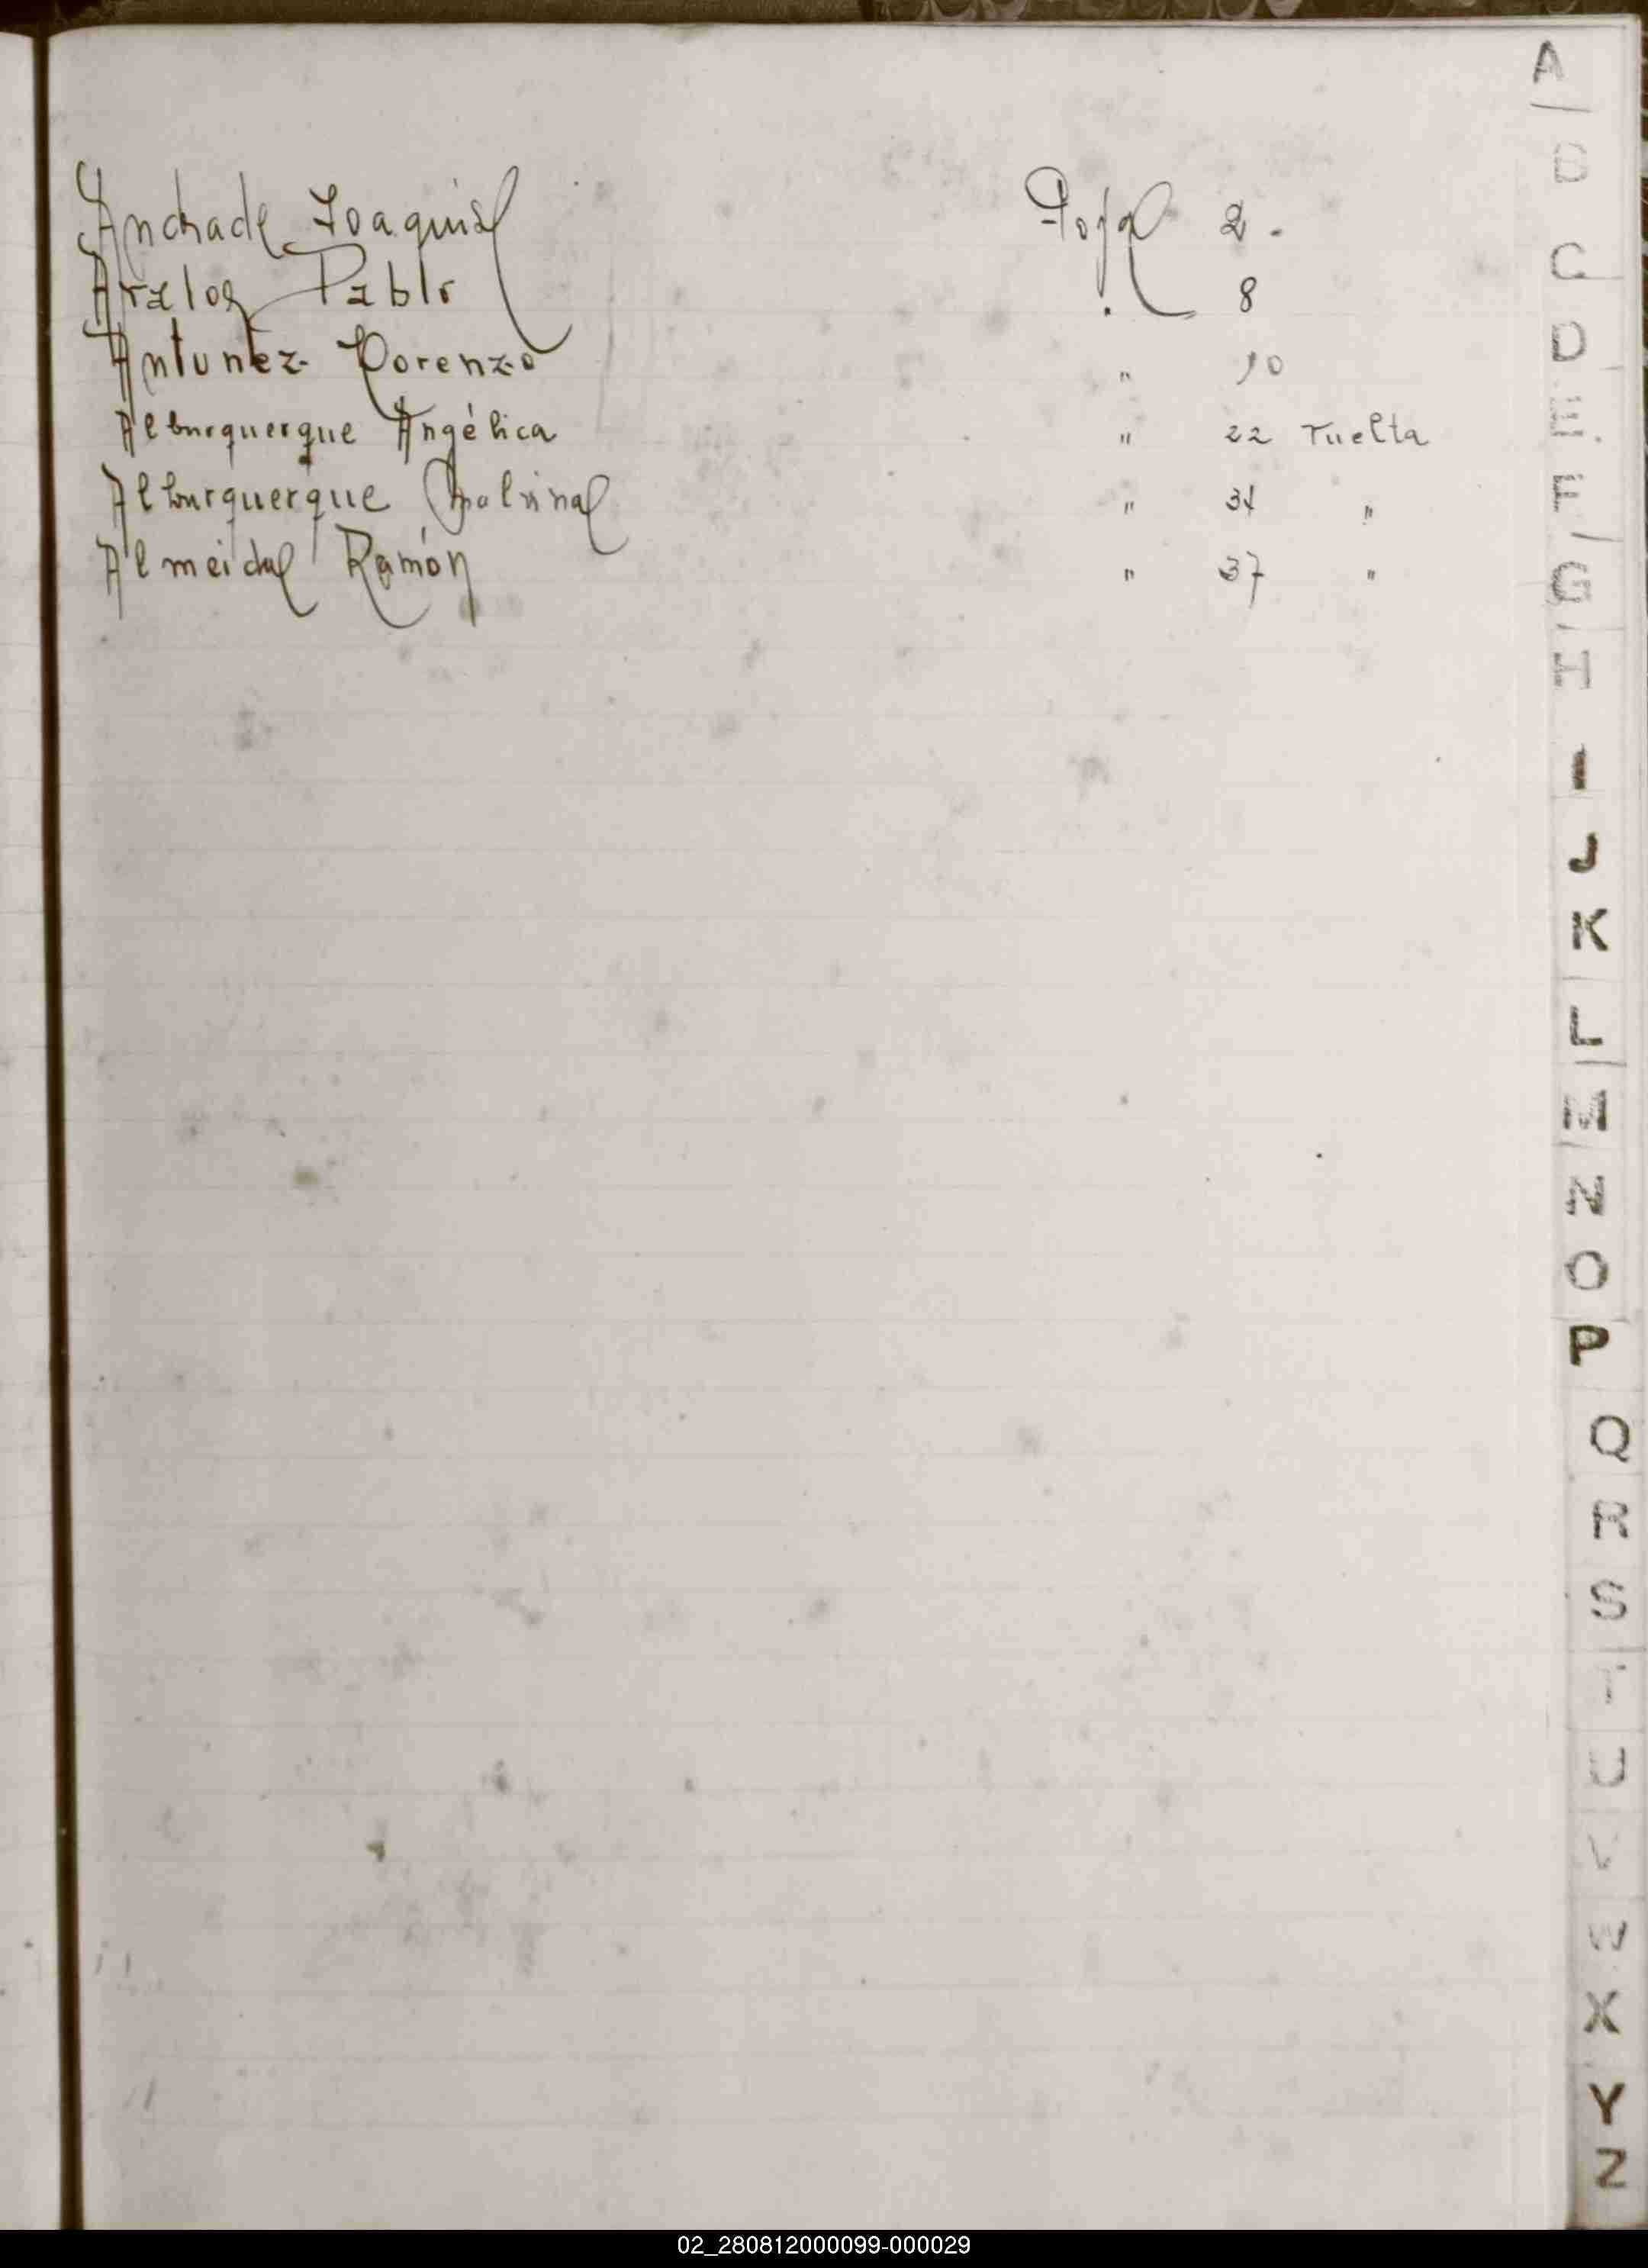 A
Andrade Joaquina Foja 2.
Avalos Pablo . 8
Antunez Lorenzo " 10
Alburquerque Angélica " 22 vuelta
Alburquerque Malvina " 34 "
Almeida Ramón " 37 "
B
C
D
E
F
G
H
I
J
K
L
M
N
O
P
Q
R
S
T
U
V
W
X
Y
Z
02_280812000099-000029